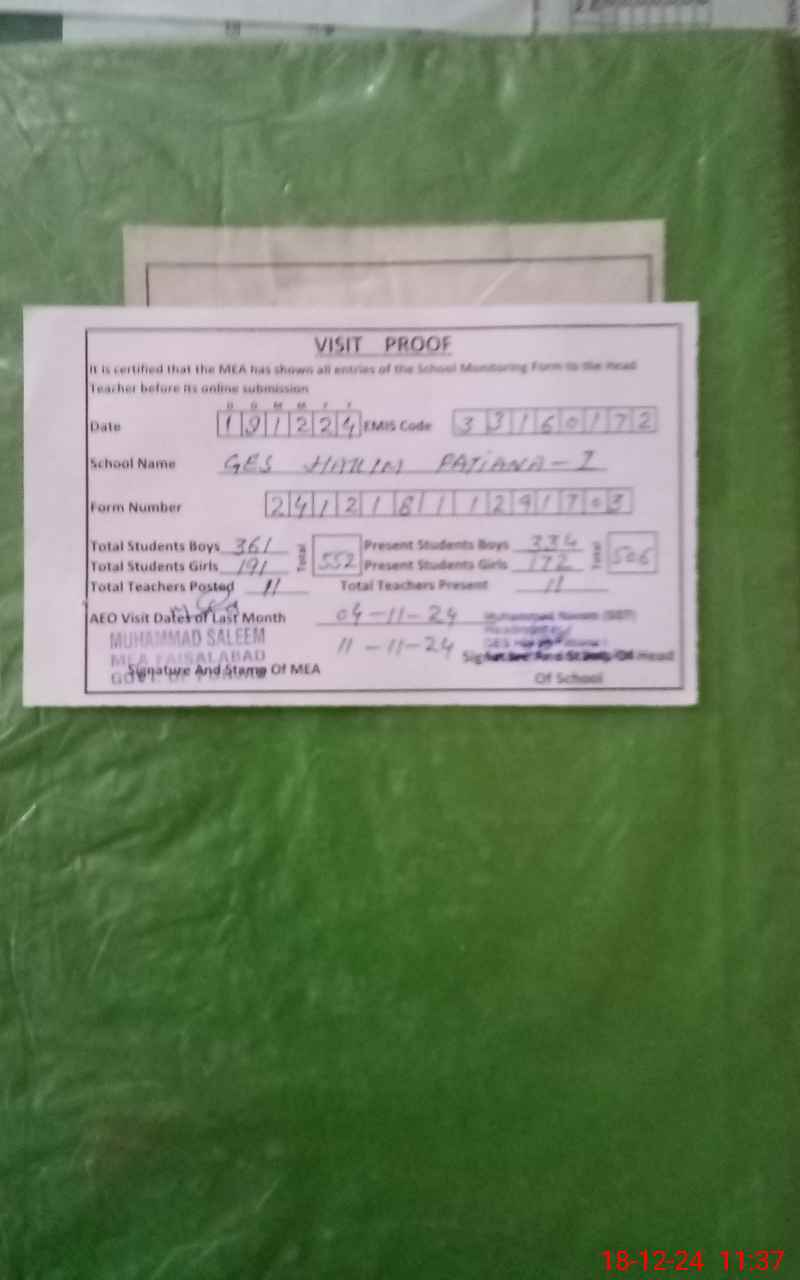 VISIT PROOF
It is certified that the MEA has shown all entries of the School Monitoring Form to the Head
Teacher before its online submission
D D M M Y Y
Date 191224 EMIS Code 33160172
School Name GES HAKIM PATIANA-I
Form Number 241218111291703
Total Students Boys 361 Total 552 Present Students Boys 334 Total 506
Total Students Girls 191 Present Students Girls 172
Total Teachers Posted 11 Total Teachers Present 11
AEO Visit Dates of Last Month 04-11-24
11-11-24
MUHAMMAD SALEEM
MEA FAISALABAD
GOVT OF
Signature And Stamp Of MEA
Signature And Stamp Of Head
Of School
18-12-24 11:37